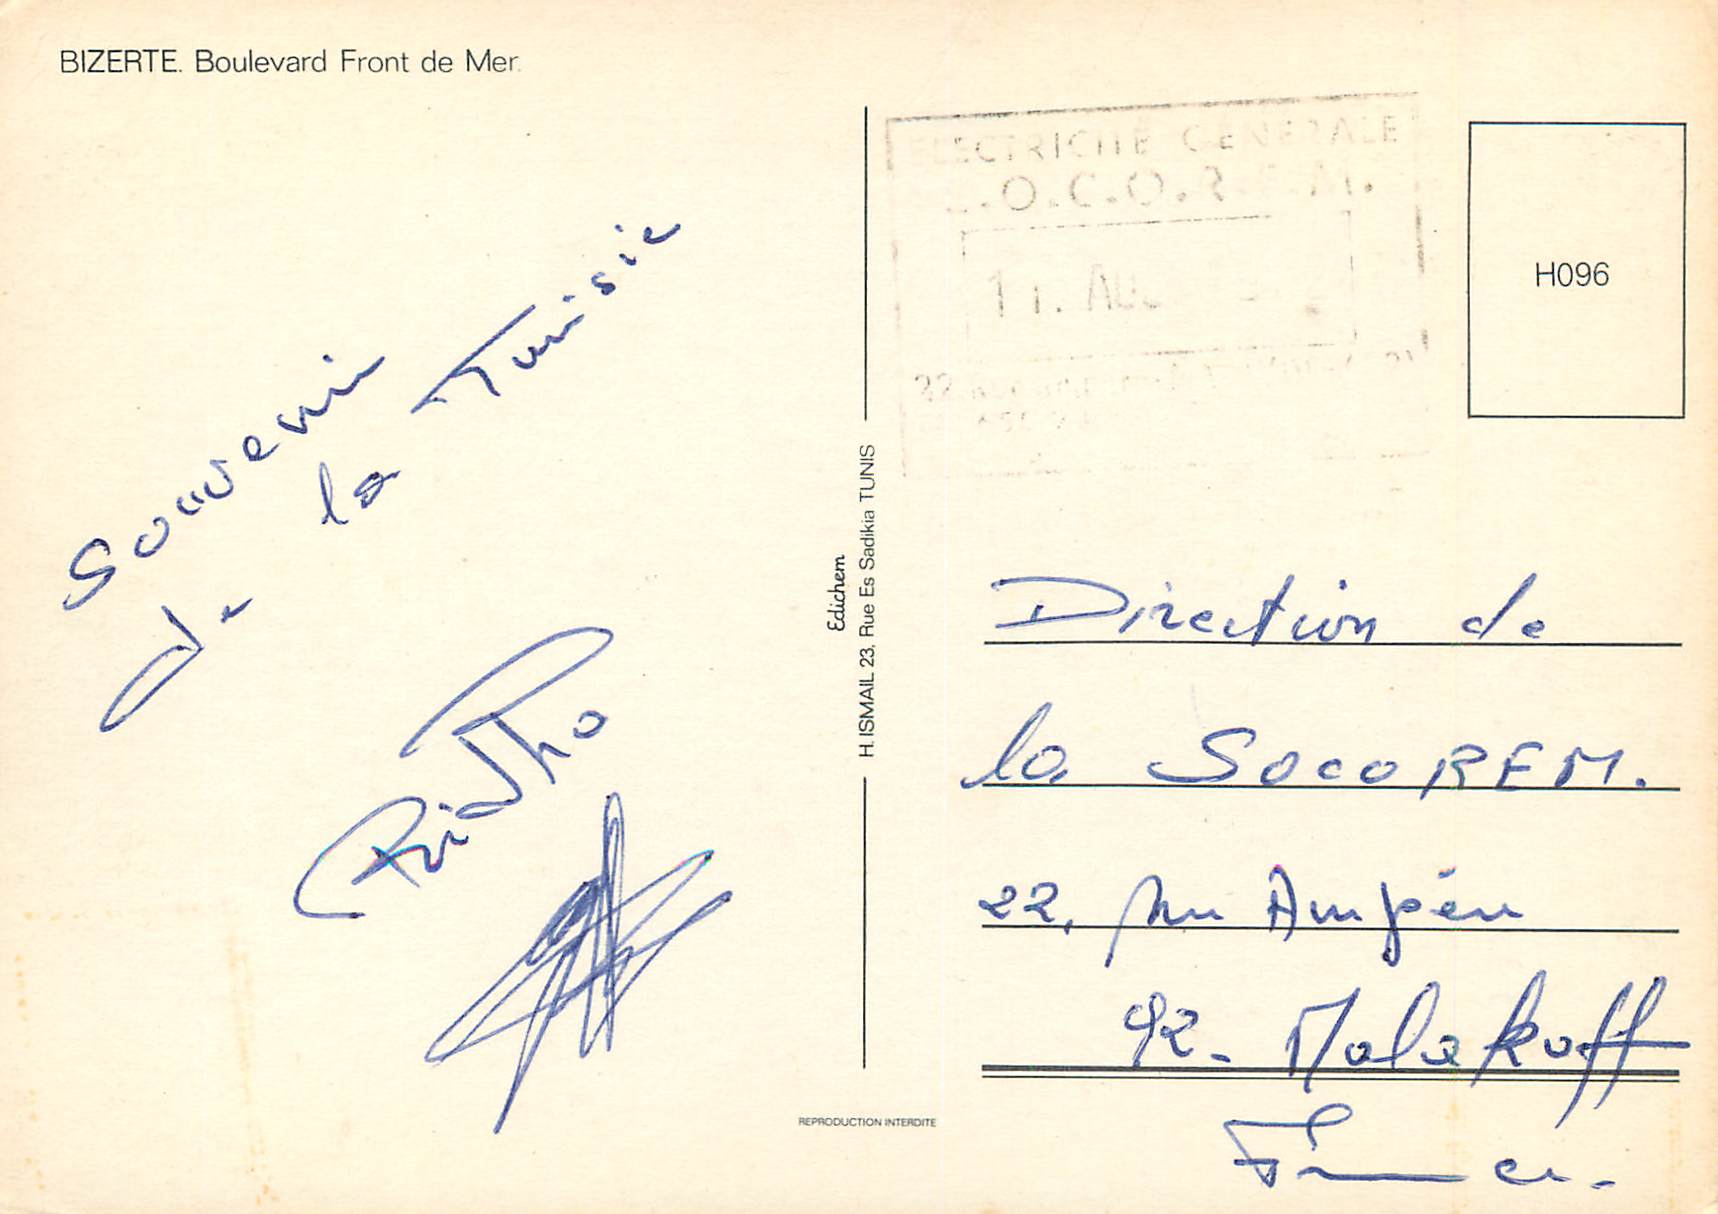 BIZERTE. Boulevard Front de Mer.
Souvenir
de la Tunisie
Ridho
Edichem
H. ISMAIL 23, Rue Es Sadikia TUNIS
REPRODUCTION INTERDITE
ELECTRICITE GENERALE
.O.C.O.R.E.M.
11. AU
22
H096
Direction de
la SocoREM.
22, rue Ampère
92. Malakoff
France.